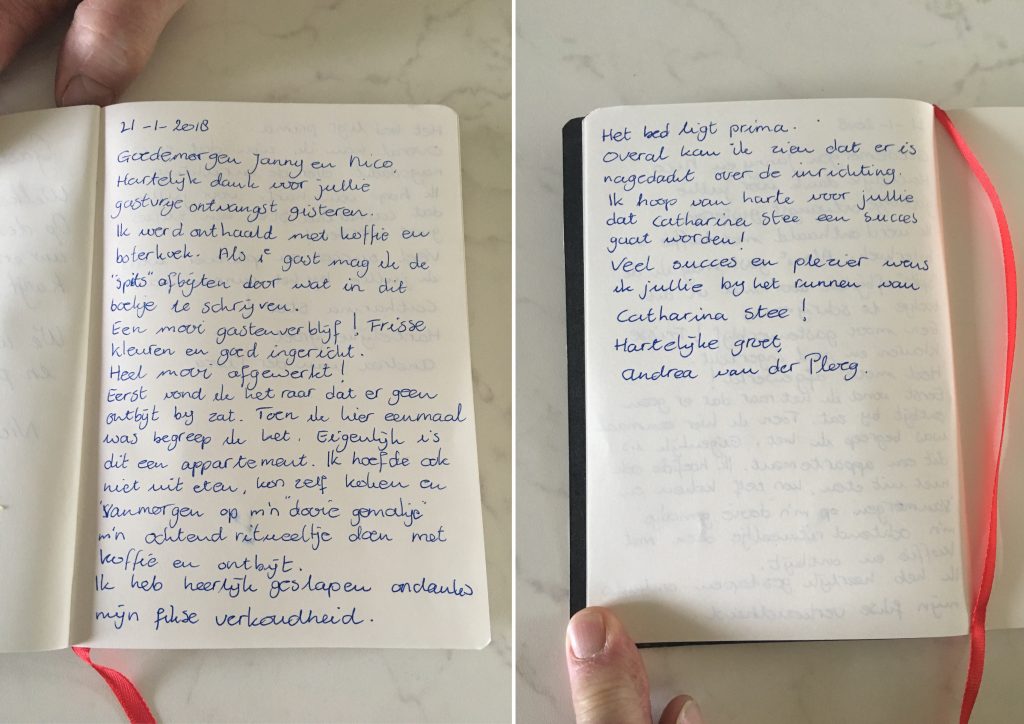 21-1-2018
Goedemorgen Janny en Nico,
Hartelijk dank voor jullie
gastvrije ontvangst gisteren.
Ik werd onthaald met koffie en
boterkoek. Als 1e gast mag ik de
"spits" afbijten door wat in dit
boekje te schrijven.
Een mooi gastenverblijf! Frisse
kleuren en goed ingericht.
Heel mooi afgewerkt!
Eerst vond ik het raar dat er geen
ontbijt by zat. Toen ik hier eenmaal
was begreep ik het. Eigenlijk is
dit een appartement. Ik hoefde ook
niet uit eten, kon zelf koken en
vanmorgen op m'n "dooie gemakje"
m'n ochtend ritueeltje doen met
koffie en ontbijt.
Ik heb heerlijk geslapen ondanks
mijn fikse verkoudheid.
Het bed ligt prima.
Overal kan ik zien dat er is
nagedacht over de inrichting.
Ik hoop van harte voor jullie
dat Catharina Stee een succes
gaat worden!
Veel succes en plezier wens
ik jullie by het runnen van
Catharina Stee!
Hartelijke groet,
Andrea van der Ploeg.